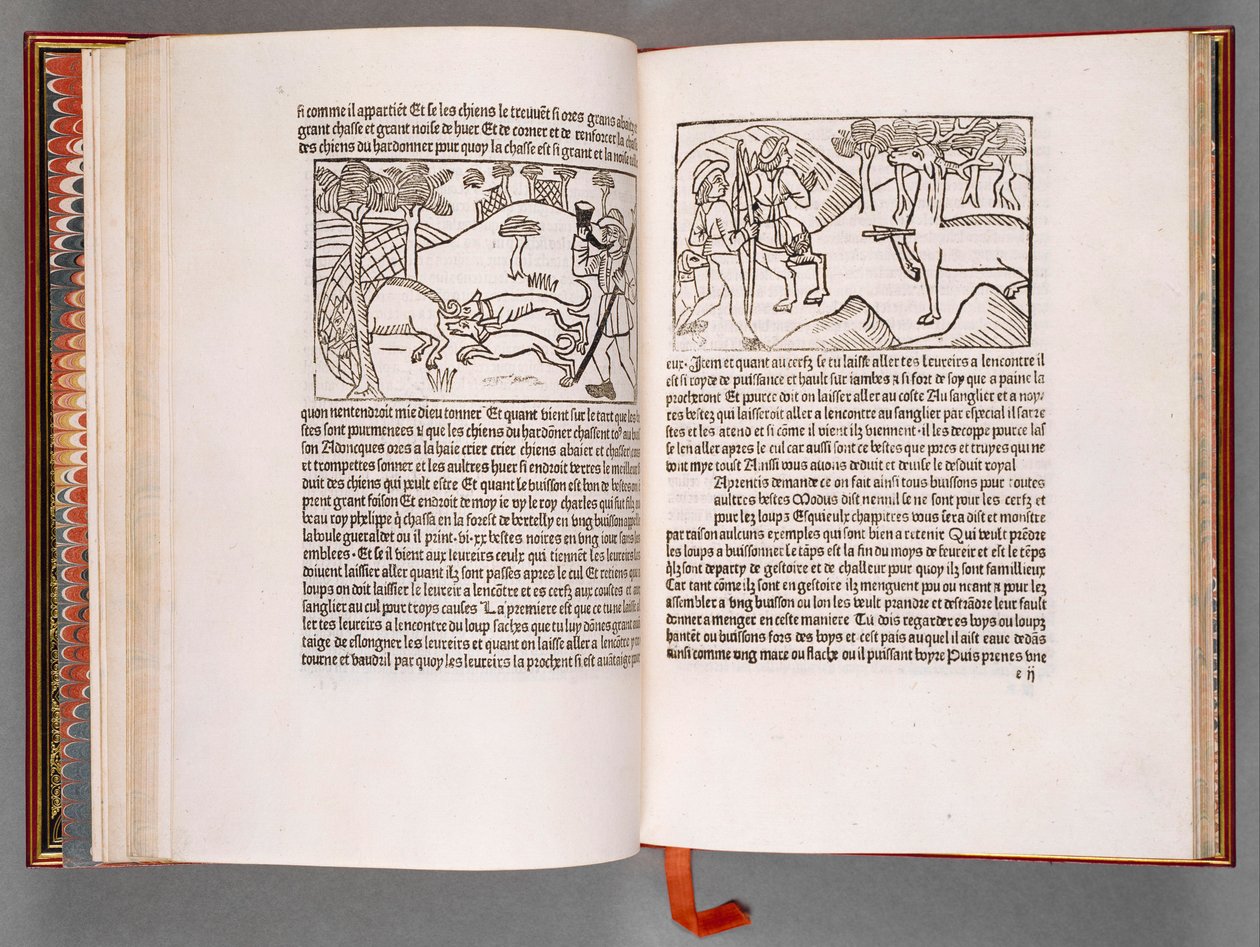 si comme il appartiẽt Et se les chiens le treuuẽt si ores grans abaitz
grant chasse et grant noise de huer Et de corner et de renforcer la
des chiens du hardonner pour quoy la chasse est si grant et la noise
quon nentendroit mie dieu tonner Et quant vient sur le tart que les
stes sont pourmenees ꝛ que les chiens du hardõner chassent to⁹ au
son Adoncques ores a la haie crier crier chiens abaier et chasser
et trompettes sonner et les aultres huer si endroit vertes le meilleur
duit des chiens qui peult estre Et quant le buisson est bon de bestes on
prent grant foison Et endroit de moy ie vy le roy charles qui fut filz
beau roy phelippe q̃ chassa en la forest de bertelly en vng buisson
la boule gueraldet ou il print ·vi·xx bestes noires en vng iour sans
emblees · Et se il vient aux leureirs ceulx qui tiennẽt les leureirs
doiuent laissier aller quant ilz sont passes apres le cul Et retiens
loups on doit laissier le leureir a lencõtre et es cerfz aux coustes et
sanglier au cul pour troys causes La premiere est que ce tu ne laisse
ler tes leureirs a lencontre du loup saches que tu luy dõnes grant
taige de eslongner les leureirs et quant on laisse aller a lencõtre
tourne et vaudril par quoy les leureirs la prochent si est auãtaige
eur· Jtem et quant au cerfz se tu laisse aller tes leureirs a lencontre il
est si royde de puissance et hault sur iambes ꝛ si fort de soy que a paine la
procheront Et pource doit on laisser aller au coste Au sanglier et a noy⸗
res bestez qui laisseroit aller a lencontre au sanglier par especial il sarre
stes et les atend et si cõme il vient ilz viennent·il les decoppe pource las
se len aller apres le cul car aussi sont ce bestes que porcs et truyes qui ne
vont mye toust Ainsi vous auons deduit et deuise le desduit royal
Aprentis demande ce on fait ainsi tous buissons pour toutes
aultres bestes Modus dist nennil se ne sont pour les cerfz et
pour lez loups Esquieulx chappitres vous sera dist et monstre
par raison aulcuns exemples qui sont bien a retenir Qui veult prẽdre
les loups a buissonner le tãps est la fin du moys de feureir et est le tẽps
q̃lz sont departy de gestoire et de challeur pour quoy ilz sont famillieux
Car tant cõme ilz sont en gestoire ilz menguent pou ou neant ꝛ pour lez
assembler a vng buisson ou lon les veult prandre et destrãdre leur fault
donner a menger en ceste maniere Tu dois regarder es boys ou loups
hantẽt ou buissons fors des boys et cest pais au quel il aist eaue dedãs
ainsi comme vng mare ou flache ou il puissant boyre Puis prenes vne
e ij